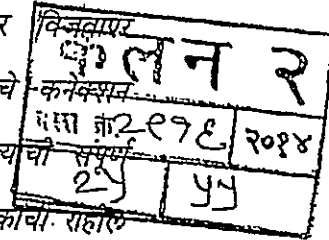 र विजवापर
क ल न २
चे कनेक्शन
दस्त क्र. २९१६ २०१४
या ची संपूर्ण
२५ ५५
कांची. राहील